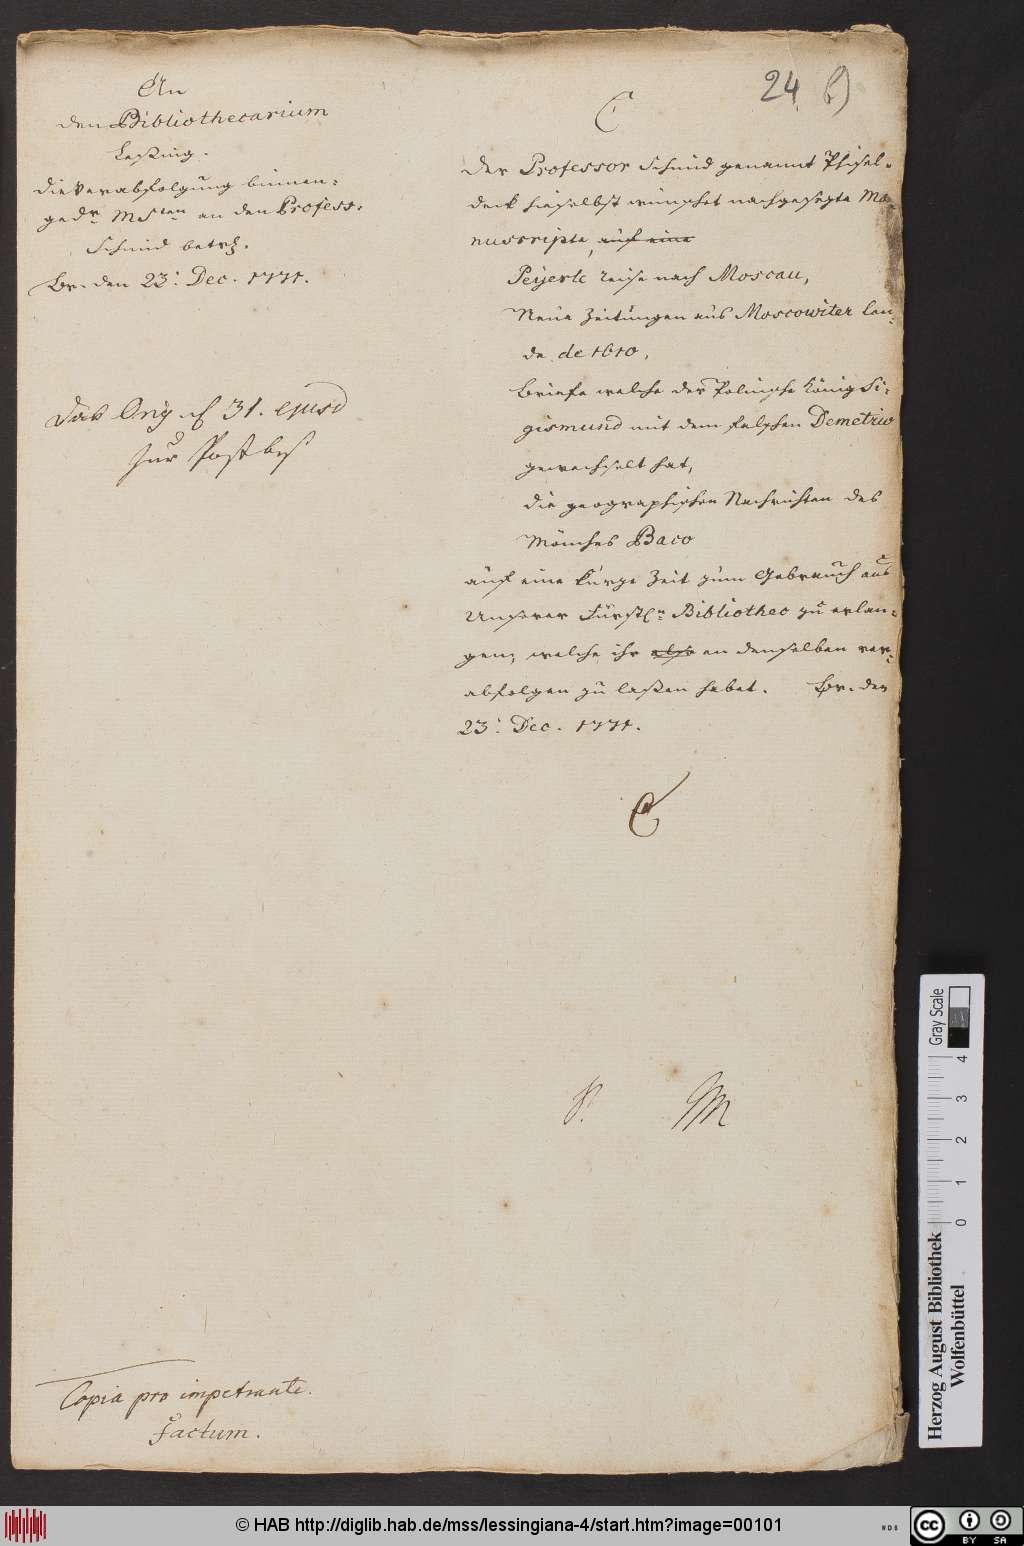 24
An
den Bibliothecarium
Leßing.
die Verabfolgung binnen-
ged. MSten an den Profess:
Schmid betr.
Br. den 23. Dec. 1771.
Das Orig. 31. ejusd
zur Post
C.
Der Professor Schmid genannt Phisel-
deck hieselbst wünschet nachgesezte Ma-
nuscripte, auf eine
Peyerle Reise nach Moscau,
Neue Zeitungen aus Moscowiter Lan-
de de 1610,
Briefe welche der Polnische König Si-
gismund mit dem falschen Demetrio
gewechselt hat,
die geographischen Nachrichten des
Mönches Baco
auf eine kurze Zeit zum Gebrauch aus
Unserer Fürstln Bibliothec zu erlan-
gen, welche ihr also an denselben ver-
abfolgen zu laßen habet. Br. den
23. Dec. 1771.
C
M
Copia pro impetrante
factum.
Gray Scale
0 1 2 3 4
Herzog August Bibliothek
Wolfenbüttel
© HAB http://diglib.hab.de/mss/lessingiana-4/start.htm?image=00101
cc BY SA